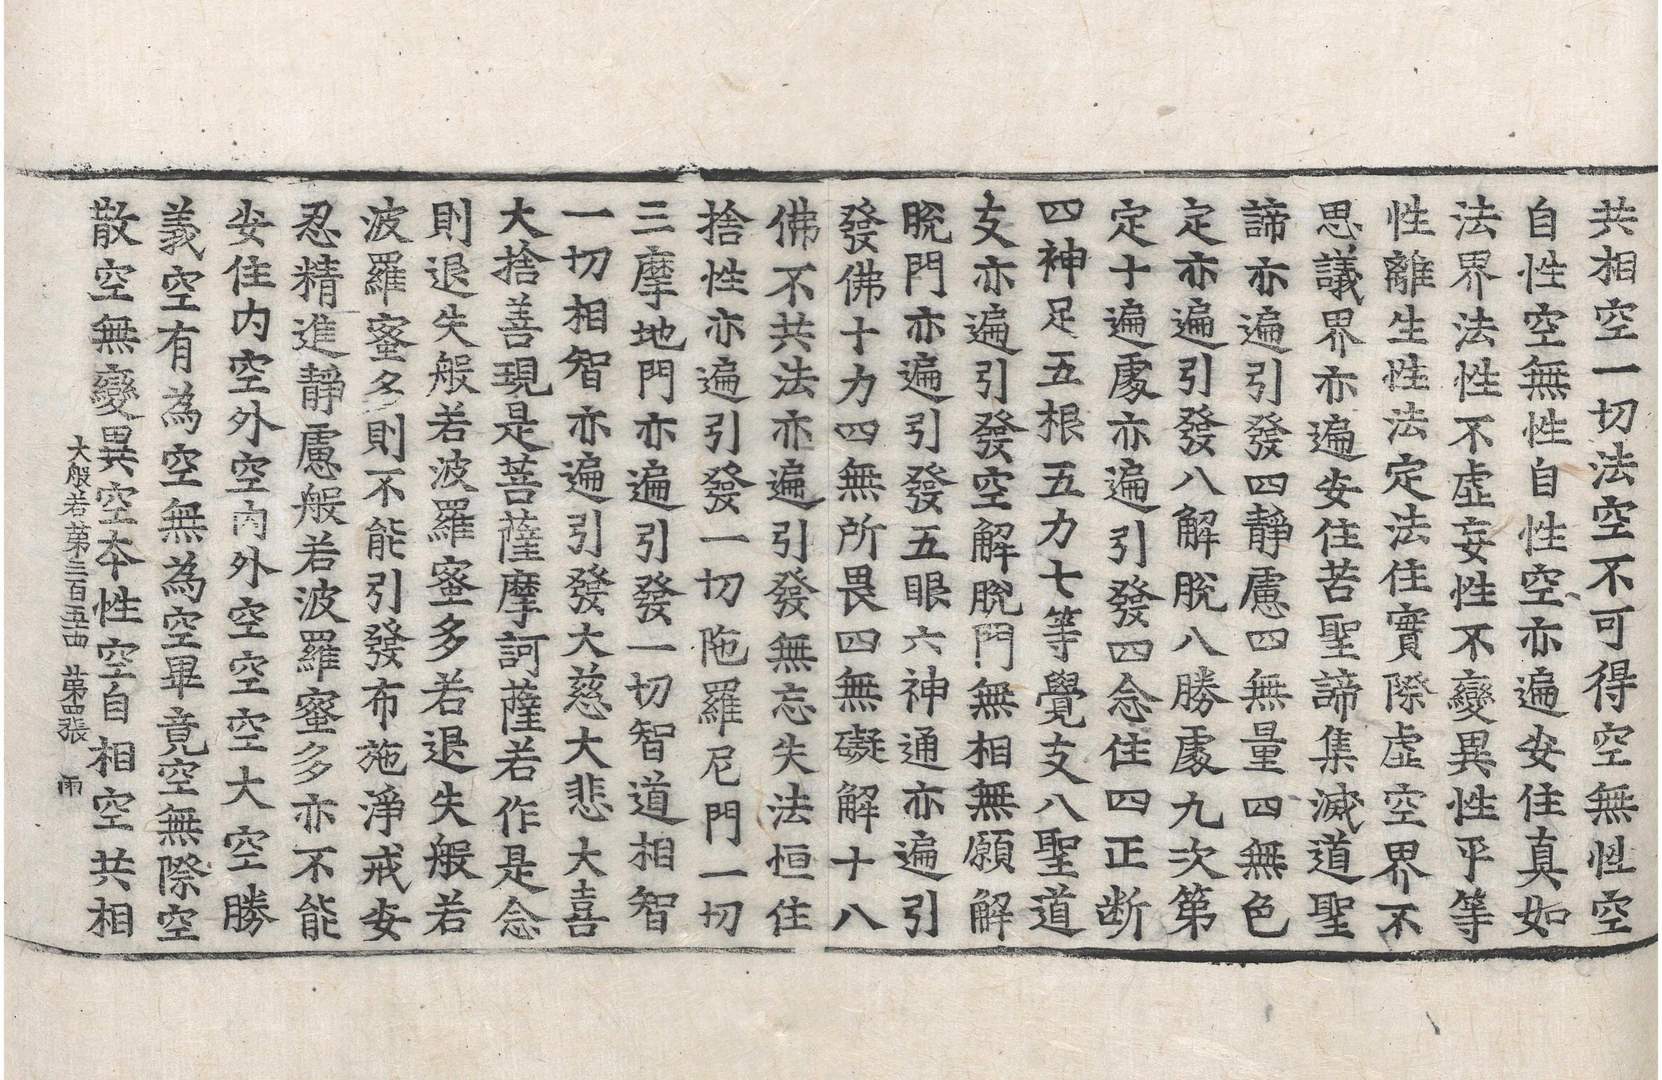 共相空一切法空不可得空無性空
自性空無性自性空亦遍安住真如
法界法性不虛妄性不變異性平等
性離生性法定法住實際虛空界不
思議界亦遍安住苦聖諦集滅道聖
諦亦遍引發四靜慮四無量四無色
定亦遍引發八解脫八勝處九次第
定十遍處亦遍引發四念住四正斷
四神足五根五力七等覺支八聖道
支亦遍引發空解脫門無相無願解
脫門亦遍引發五眼六神通亦遍引
發佛十力四無所畏四無礙解十八
佛不共法亦遍引發無忘失法恒住
捨性亦遍引發一切陁羅尼門一切
三摩地門亦遍引發一切智道相智
一切相智亦遍引發大慈大悲大喜
大捨善現是菩薩摩訶薩若作是念
則退失般若波羅蜜多若退失般若
波羅蜜多則不能引發布施淨戒安
忍精進靜慮般若波羅蜜多亦不能
安住內空外空內外空空空大空勝
義空有為空無為空畢竟空無際空
散空無變異空本性空自相空共相
大般若第三百五四 第四張 雨